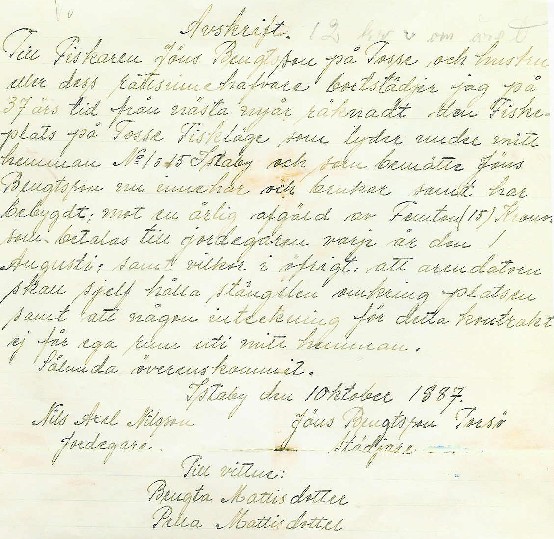 Avskrift.
Till Fiskaren Jöns Bengtsson på Tosse och hustru
eller dess rättsinnehafvare bortstädjer jag på
37 års tid från nästa nyår räknadt den Fiske-
plats på Tosse Fiskläge som lyder under mitt
hemman No 1 o 45 Istaby och som bemälte Jöns
Bengtsson nu innehar och brukar samt har
bebygdt; mot en årlig afgäld av Femton (15) Kronor
som betalas till jordegaren varje år den 1
Augusti; samt vilkor i öfrigt: att arendatorn
skall sjelf hålla stängslen omkring platsen
samt att någon inteckning för detta kontrakt
ej får ega rum uti mitt hemman.
Sålunda överenskommit.
Istaby den 1 Oktober 1887.
Nils Axel Nilsson Jöns Bengtsson Torsö
Jordegare. Städjare
Till vittne:
Bengta Mattisdotter
Pella Mattisdotter